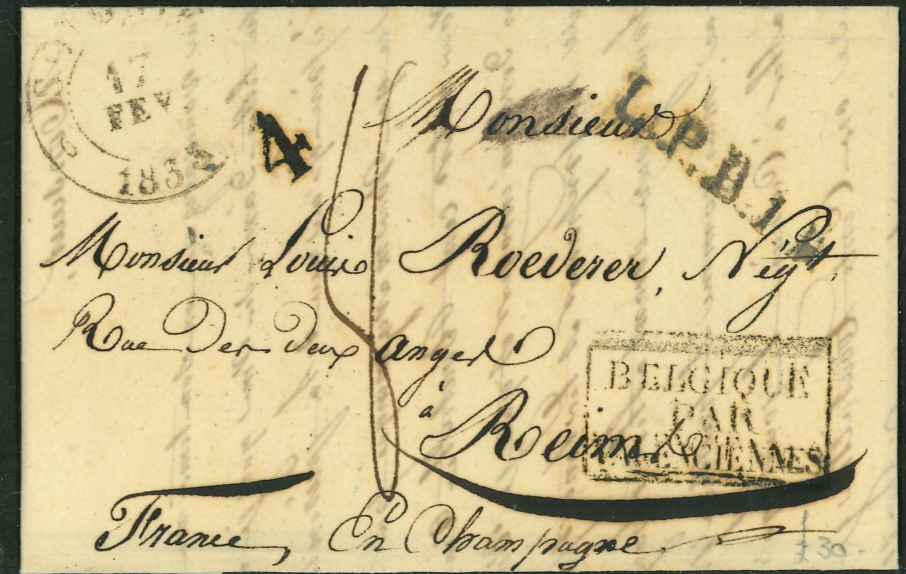 17
FEV
183
4
Monsieur
L.P.B.1.R
Monsieur Louis Roederer, Négt,
Rue Des deux anges
à
Reims
BELGIQUE
PAR
VALENCIENNES
France, En Champagne
£30-